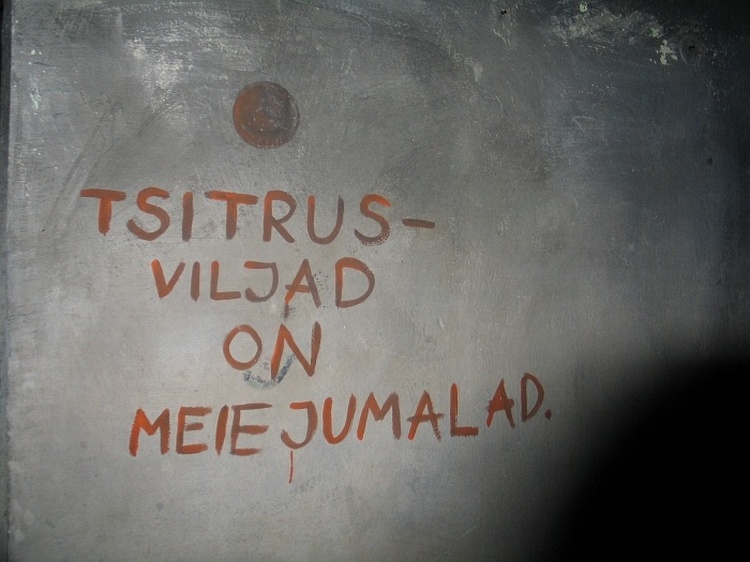 TSITRUS-
VILJAD
ON
MEIE JUMALAD.